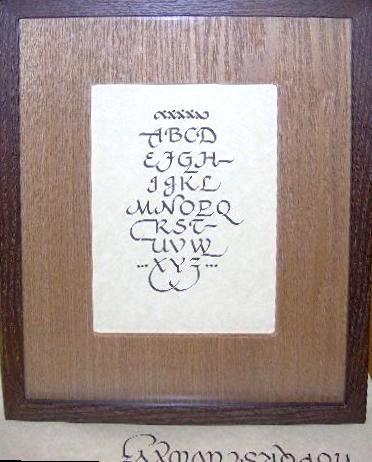 ABCD
EFGH
IJKL
MNOPQ
RST
UVW
...XYZ...